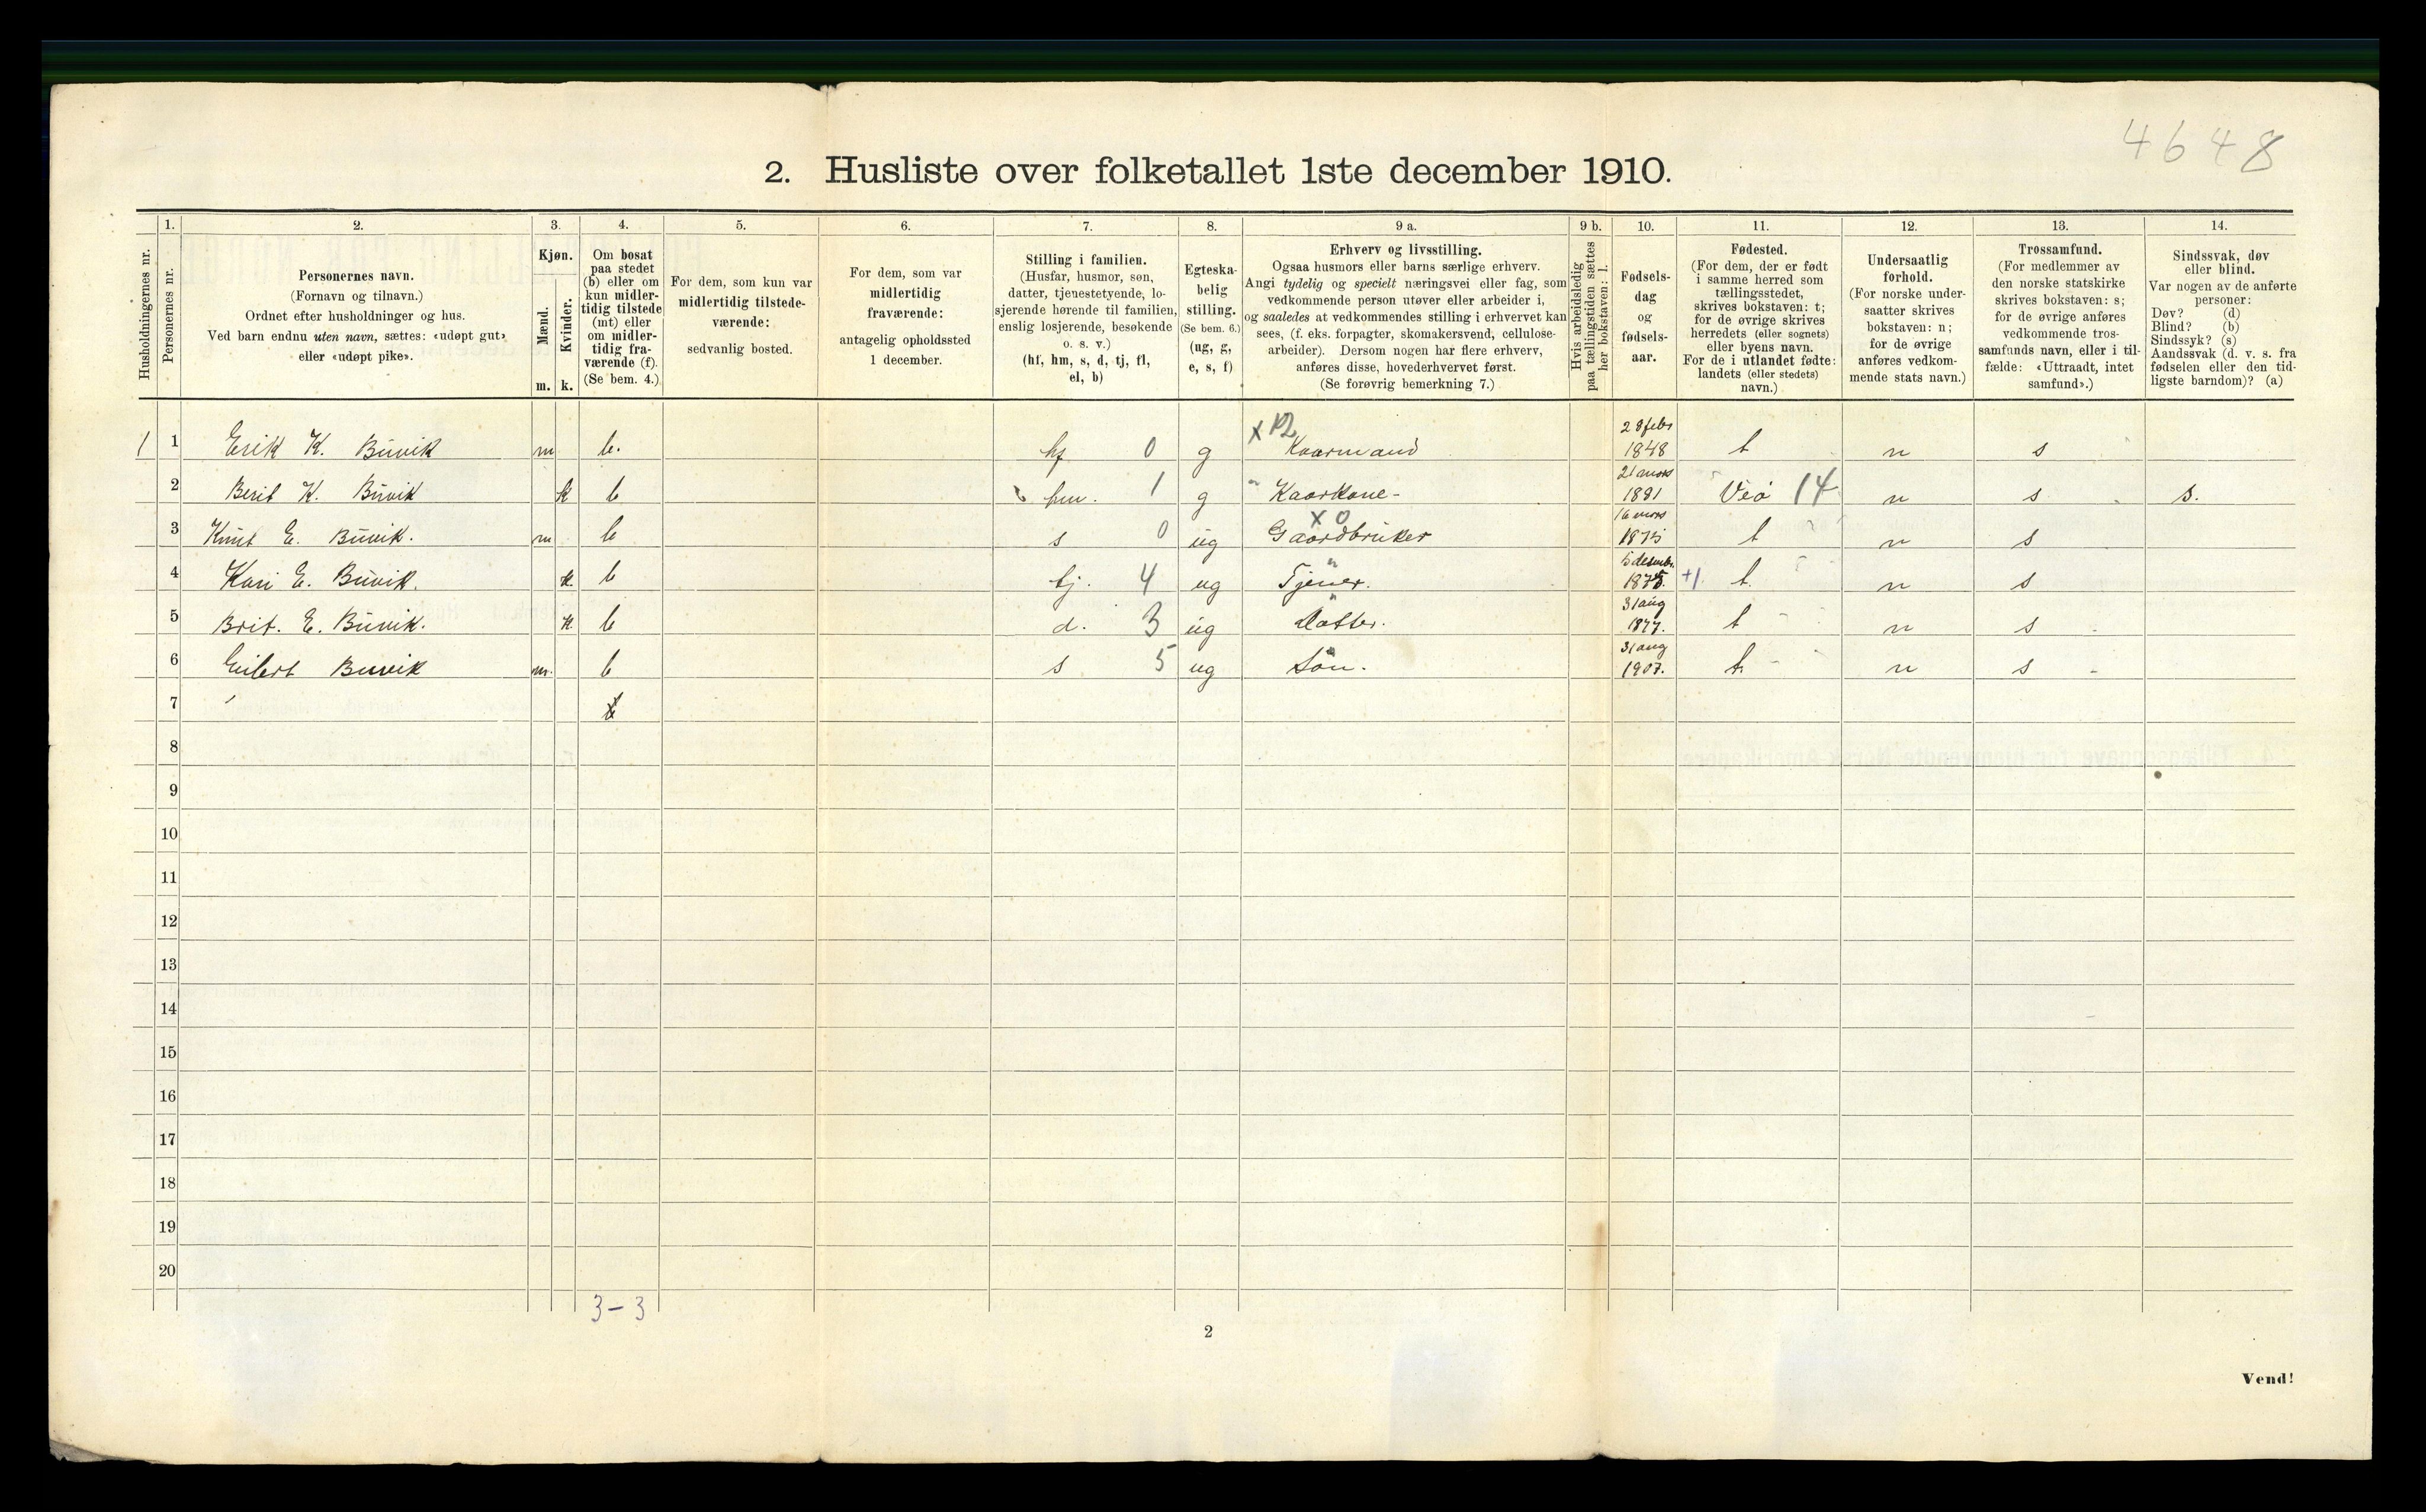 4648
2. Husliste over folketallet 1ste december 1910.
Husholdningernes nr.
1.
Personernes nr.
2.
Personernes navn.
(Fornavn og tilnavn.)
Ordnet efter husholdninger og hus.
Ved barn endnu uten navn, sættes: «udøpt gut»
eller «udøpt pike».
3.
Kjøn.
Mænd.
Kvinder.
m. k.
4.
Om bosat
paa stedet
(b) eller om
kun midler-
tidig tilstede
(mt) eller
om midler-
tidig fra-
værende (f).
(Se bem. 4.)
5.
For dem, som kun var
midlertidig tilstede-
værende:
sedvanlig bosted.
6.
For dem, som var
midlertidig
fraværende:
antagelig opholdssted
1 december.
7.
Stilling i familien.
(Husfar, husmor, søn,
datter, tjenestetyende, lo-
sjerende hørende til familien,
enslig losjerende, besøkende
o. s. v.)
(hf, hm, s, d, tj, fl,
el, b)
8.
Egteska-
belig
stilling.
(Se bem. 6.)
(ug, g,
e, s, f)
9 a.
Erhverv og livsstilling.
Ogsaa husmors eller barns særlige erhverv.
Angi tydelig og specielt næringsvei eller fag, som
vedkommende person utøver eller arbeider i,
og saaledes at vedkommendes stilling i erhvervet kan
sees, (f. eks. forpagter, skomakersvend, cellulose-
arbeider). Dersom nogen har flere erhverv,
anføres disse, hovederhvervet først.
(Se forøvrig bemerkning 7.)
9 b.
Hvis arbeidsledig
paa tællingstiden sættes
her bokstaven: l.
10.
Fødsels-
dag
og
fødsels-
aar.
11.
Fødested.
(For dem, der er født
i samme herred som
tællingsstedet,
skrives bokstaven: t;
for de øvrige skrives
herredets (eller sognets)
eller byens navn.
For de i utlandet fødte:
landets (eller stedets)
navn.)
12.
Undersaatlig
forhold.
(For norske under-
saatter skrives
bokstaven: n;
for de øvrige
anføres vedkom-
mende stats navn.)
13.
Trossamfund.
(For medlemmer av
den norske statskirke
skrives bokstaven: s;
for de øvrige anføres
vedkommende tros-
samfunds navn, eller i til-
fælde: «Uttraadt, intet
samfund».)
14.
Sindssvak, døv
eller blind.
Var nogen av de anførte
personer:
Døv? (d)
Blind? (b)
Sindssyk? (s)
Aandssvak (d. v. s. fra
fødselen eller den tid-
ligste barndom)? (a)
1 1 Erik K. Buvik m b. hf 0 g x Kaarmand 28 febr 1848 t n s
2 Berit K. Buvik k b hm. 1 g Kaarkone - 21 1881 Veø 14 n s s.
3 Knut E. Buvik. m b s 0 ug x 0 Gaardbruker 16 mars 1875 t n s
4 Kari E. Buvik. k b tj. 4 ug " Tjener. 5 +1 t. n s
5 Brit. E. Buvik. k b d. 3 ug " Datter. 31 aug 1877. t n s
6 Eilert Buvik m. b s 5 ug " Søn. 31 aug 1907. t n s
7
8
9
10
11
12
13
14
15
16
17
18
19
20
3 - 3
2
Vend!